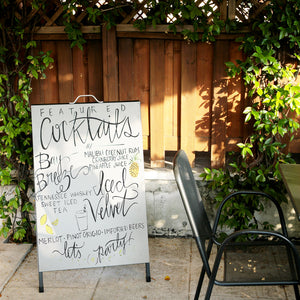 FEATURED
Cocktails
Bay Breeze
MALIBU COCONUT RUM
CRANBERRY JUICE
PINEAPPLE JUICE
Iced Velvet
TENNESSEE WHISKEY
SWEET ICED
TEA
MERLOT · PINOT GRIGIO · IMPORTED BEERS
let's party